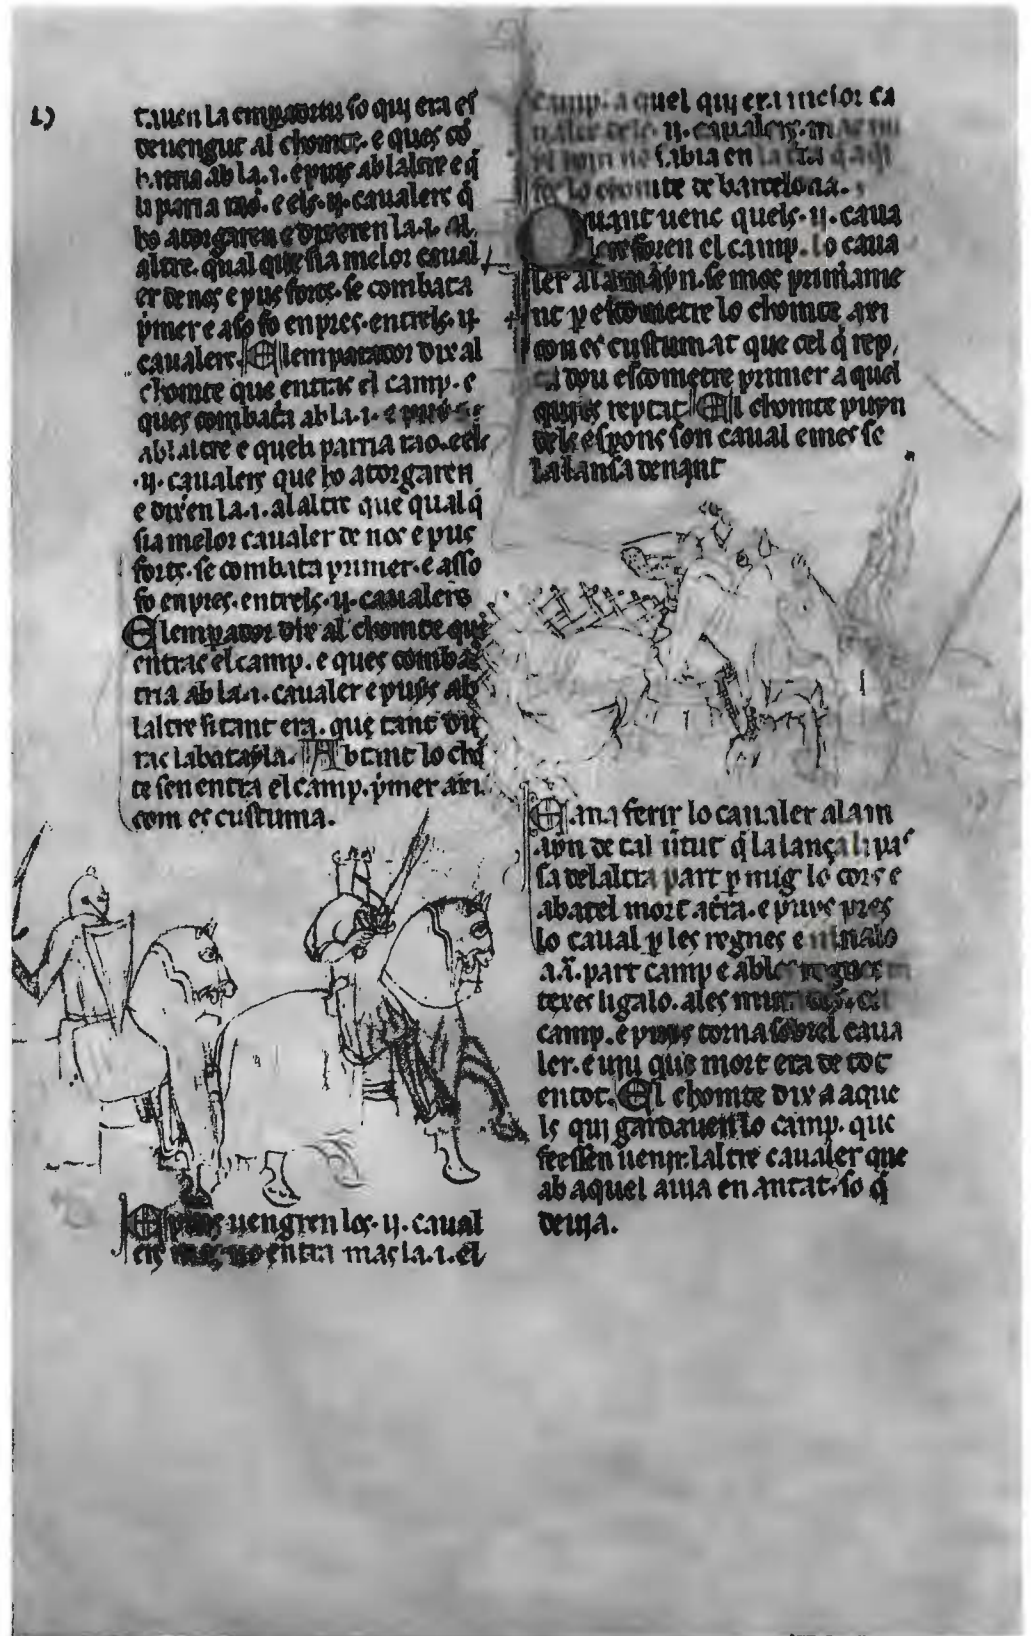 tauen la emperadriu so quj era es
deuengut al chomte. e ques cō
batria ab la .i. e puys ab laltre e q̄
li parria rao. e els .ij. caualers q̄
ho atorgaren e dixeren la .i. al
altre. qual que sia melor caual
er de nos e pus forts. se combata
p̄mer e aso fo enpres. entrels .ij.
caualers. El emperador dix al
chomte que entras el camp. e
ques combata ab la .i. e puys
ab laltre e queli parria rao. e els
.ij. caualers que ho atorgaren
e dixen la .i. al altre que qual q̄
sia melor caualer de nos e pus
forts. se combata primer. e asso
fo enpres. entrels .ij. caualers
El emperador dix al chomte que
entras el camp. e ques comba
tria ab la .i. caualer e puys ab
laltre si tant era. que tant du
ras la batayla. Abtant lo chō
te sen entra el camp. p̄mer axi
com es custuma.
E puys uengren los .ij. caual
ers mas no entra mas la .i. el
camp. a quel quj era melor ca
ualer dels .ij. caualers. m
hom no sabia en la t̄ra q̄ aqi
fos lo chomte de barcelona.
Quant uenc quels .ij. caua
lers foren el camp. lo caua
ler alamayn. se moc primame
nt p̄ escometre lo chomte axi
con es custumat que cel q̄ rep
ta dou escometre primer a quel
qui es reptat. El chomte puyn
dels espons son caual e mes se
la lansa denant
E ana ferir lo caualer alam
ayn de tal ūtut q̄ la lança li pa
sa delaltra part p̄ mig lo cors e
abatel mort at̄ra. e puys pres
lo caual p̄ les regnes e menalo
a .i. part camp e ab les regnes m
texes ligalo. ales
camp. e puys torna sobrel caua
ler. e uiu que mort era de tot
en tot. El chomte dix a aque
ls qui gardauen lo camp. que
feessen uenir. laltre caualer que
ab aquel auia en antat. so q̄
deuja.